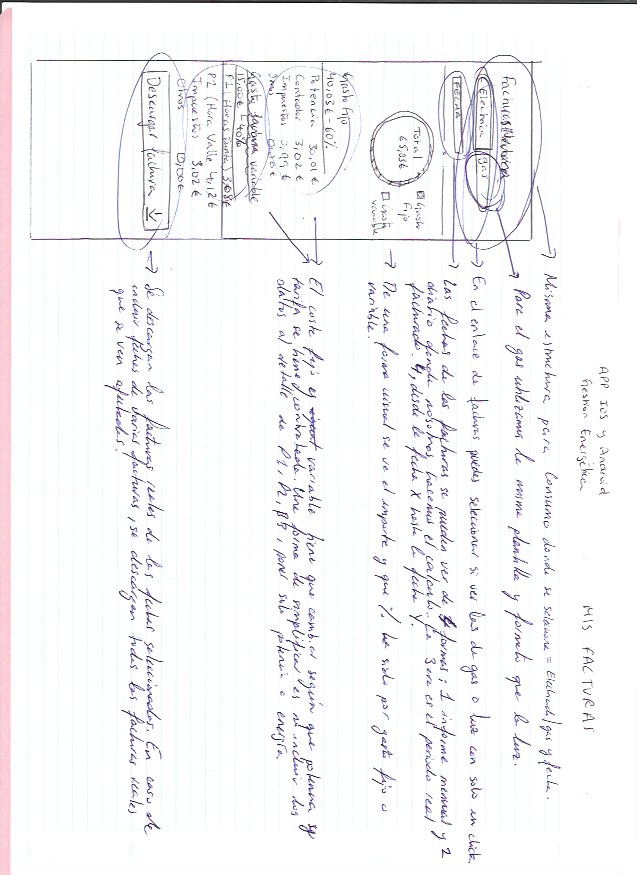 APP Ios y Android
Gestion Energética
MIS FACTURAS
Facturas
Electrica | gas
FECHA
Total
65,05€
Gasto
fijo
gasto
variable
Gasto Fijo
40,03€ - 60%
Potencia 30,01€
Contador 3,02€
Impuestos 2,99€
Gasto variable
15,00€ - 40%
P1 (Horas Punta) 3,08€
P2 (Hora Valle) 4,12€
Impuestos 3,02€
Otros 0,00€
Descargar factura
→ Misma estructura para Consumo donde se selecciona = Electricidad/gas y fecha.
→ Para el gas utilizamos la misma plantilla y formato que la luz.
→ En el enlace de facturas puedes seleccionar si ver las de gas o luz con solo un click.
→ Las fechas de las facturas se pueden ver de formas; 1 informe mensual y 2
diario donde nosotros hacemos el calculo. La 3 era es el periodo real
facturado. desde la fecha X hasta la fecha Y.
→ De una forma visual se ve el importe y que % ha sido por gasto fijo o
variable.
→ El coste fijo y variable tiene que cambiar según que potencia y
tarifa se tiene contratada. Una forma de simplificar es no incluir los
datos al detalle de P1, P2, P3, poner solo potencia o energía.
→ Se descargan las facturas reales de las fechas seleccionadas. En caso de
incluir fechas de varias facturas, se descargan todas las facturas reales
que se ven afectadas.